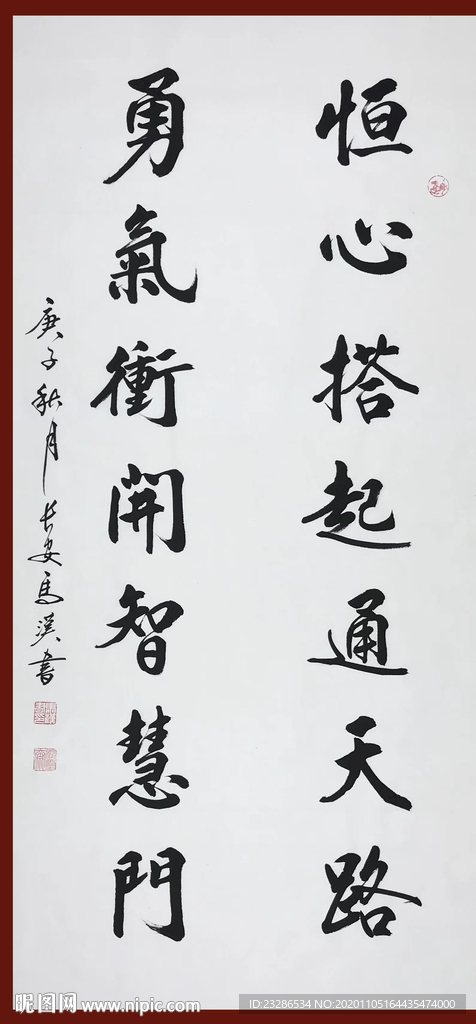 恒心搭起通天路
勇氣衝開智慧門
庚子秋月長安馬溪書
昵图网 www.nipic.com
ID:23286534 NO:20201105164435474000